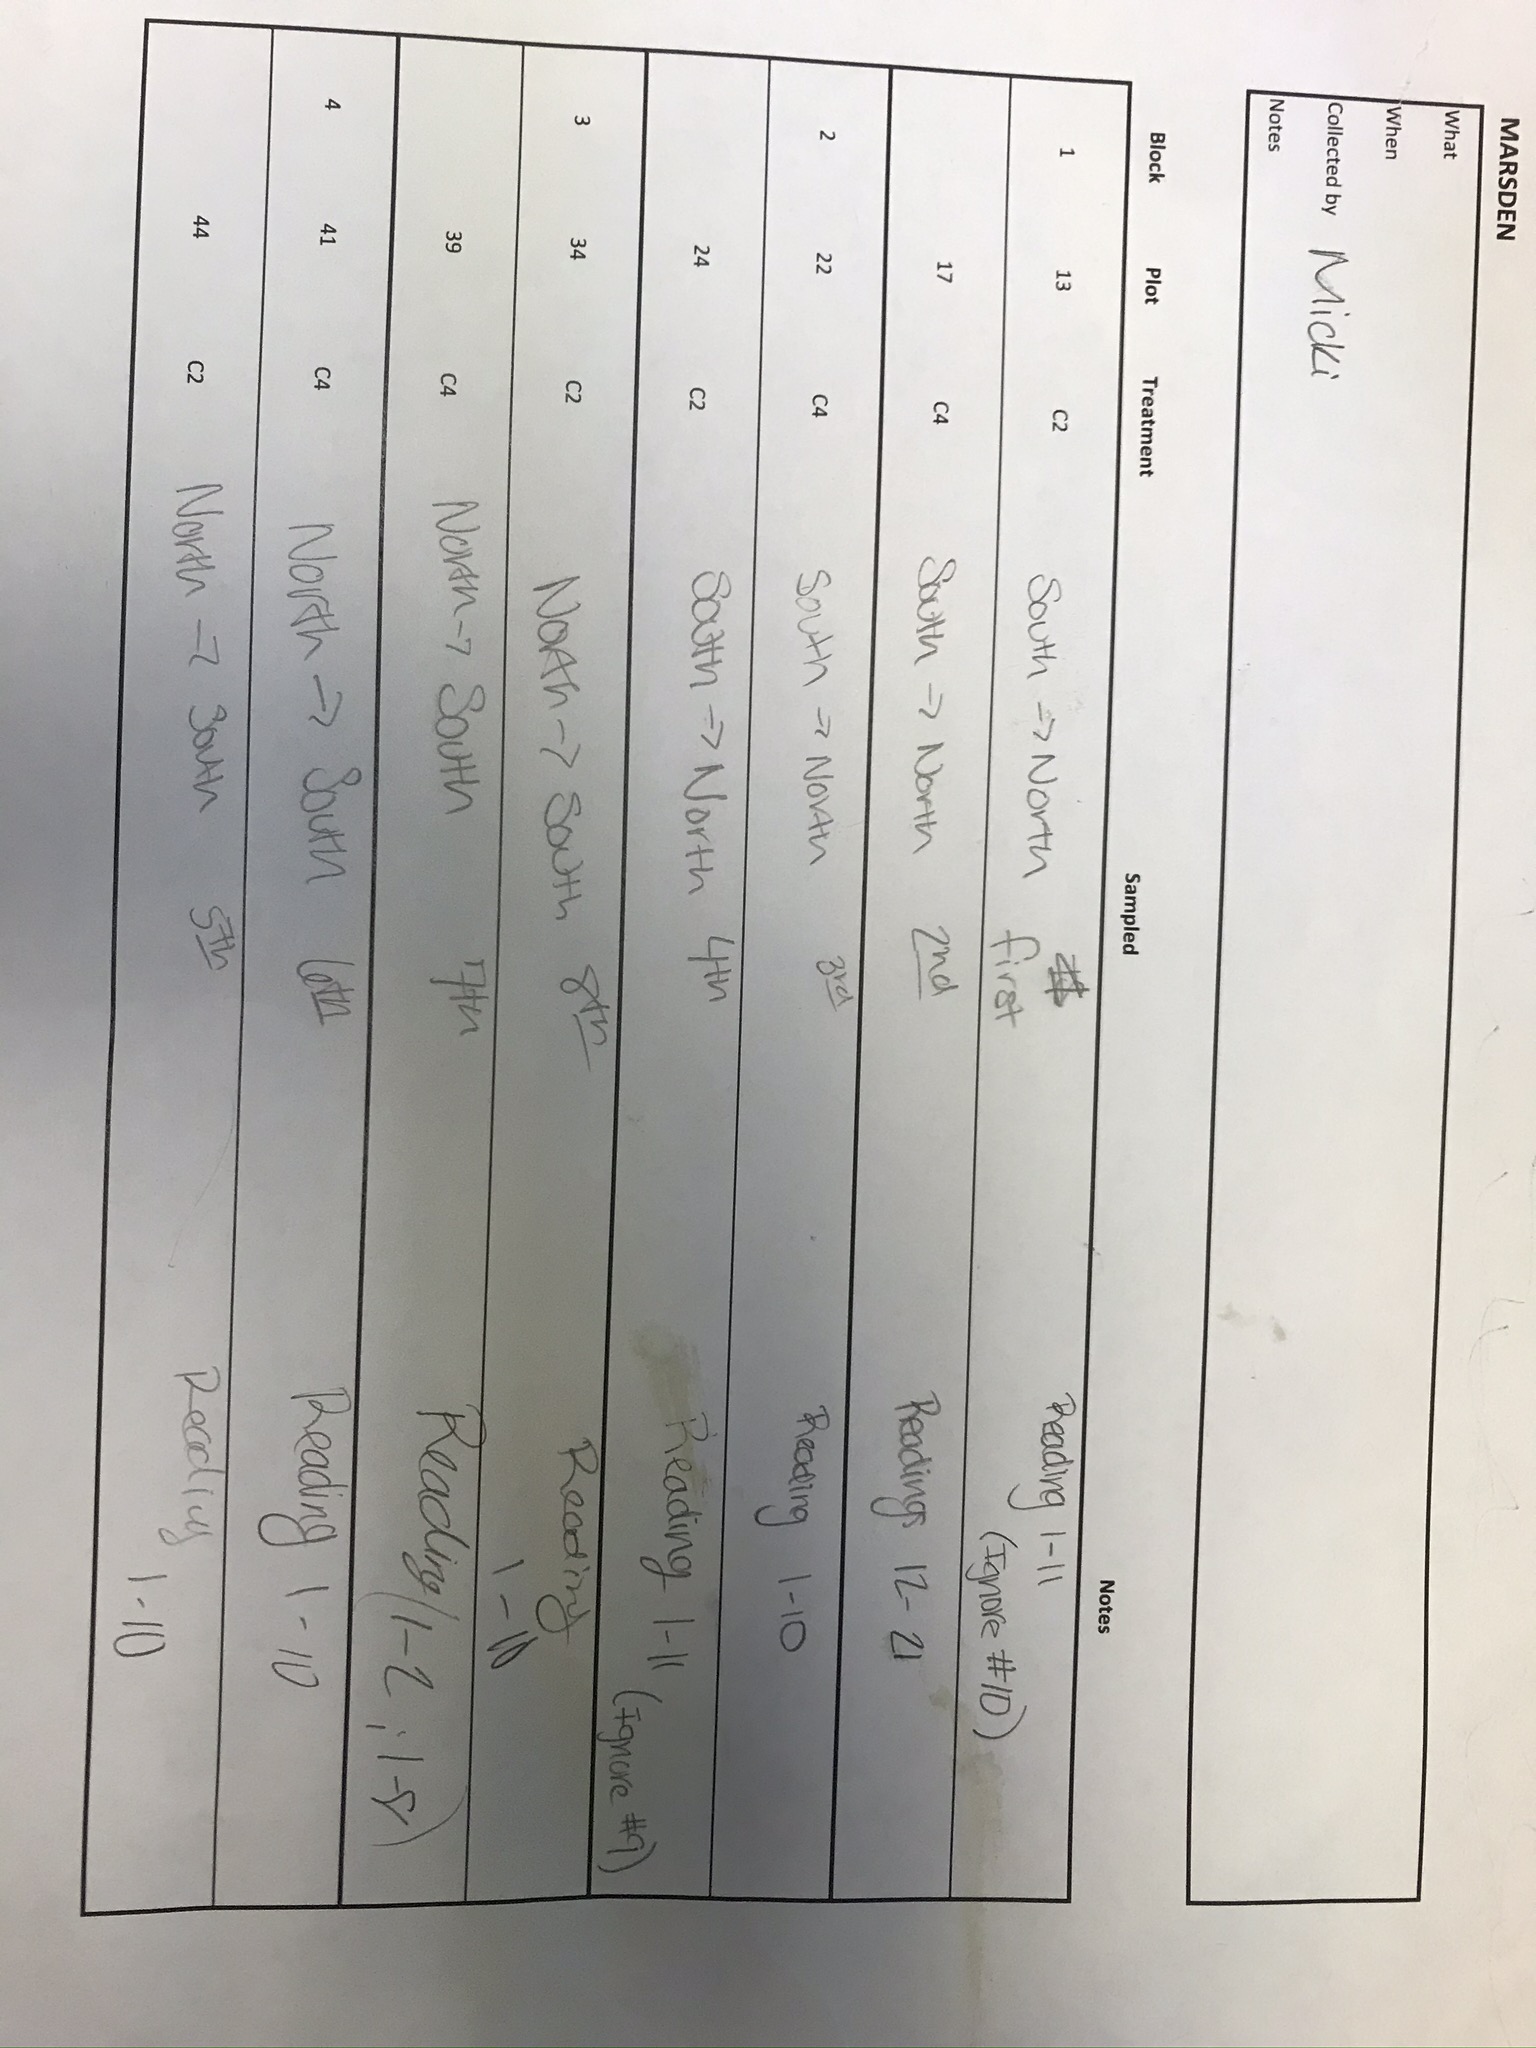 MARSDEN
What
When
Collected by Micki
Notes
Block Plot Treatment Sampled Notes
1 13 C2 South -> North first Reading 1-11
(Ignore #10)
17 C4 South -> North 2nd Readings 12-21
2 22 C4 South -> North 3rd Reading 1-10
24 C2 South -> North 4th Reading 1-11 (Ignore #9)
3 34 C2 North -> South 8th Reading
1-10
39 C4 North -> South 7th Reading (1-2 ; 1-8)
4 41 C4 North -> South 6th Reading 1-10
44 C2 North -> South 5th Reading
1-10